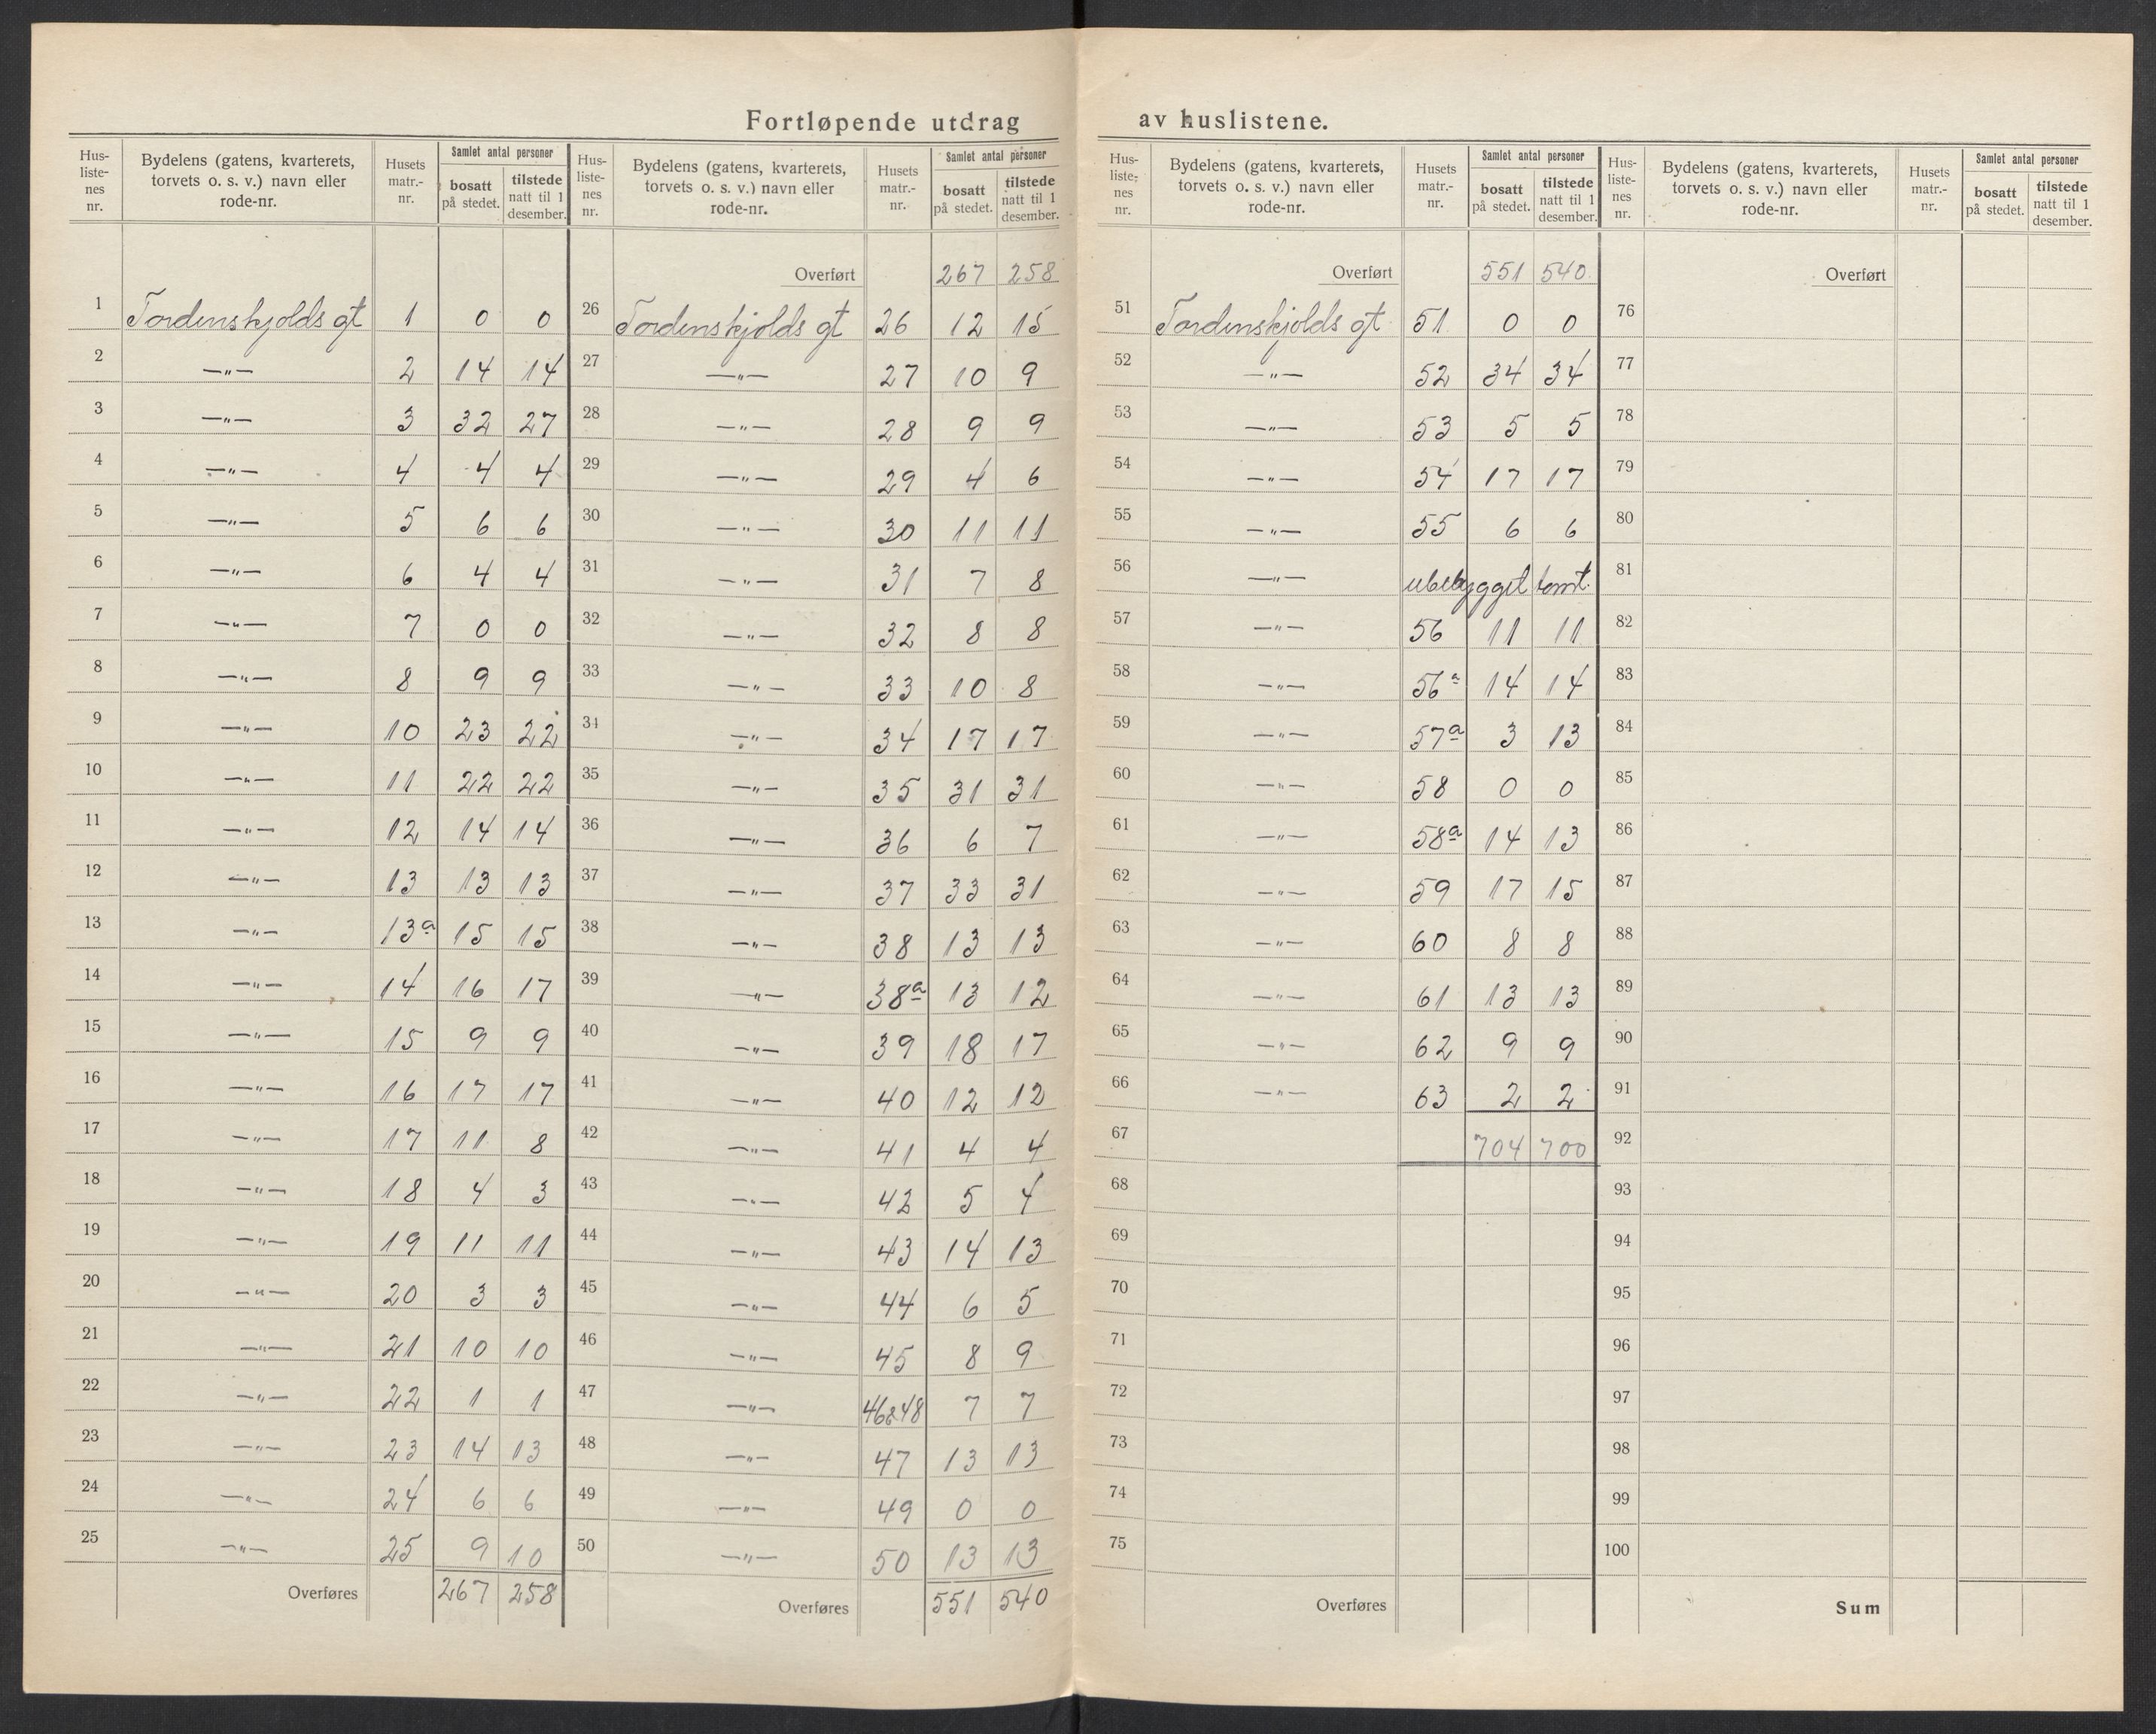 Fortløpende utdrag av huslistene.
Hus-listenes nr. | Bydelens (gatens, kvarterets, torvets o. s. v.) navn eller rode-nr. | Husets matr.-nr. | Samlet antal personer: bosatt på stedet. | tilstede natt til 1 desember.
1 Tordenskjolds gt 1 0 0
2 —„— 2 14 14
3 —„— 3 32 27
4 —„— 4 4 4
5 —„— 5 6 6
6 —„— 6 4 4
7 —„— 7 0 0
8 —„— 8 9 9
9 —„— 10 23 22
10 —„— 11 22 22
11 —„— 12 14 14
12 —„— 13 13 13
13 —„— 13a 15 15
14 —„— 14 16 17
15 —„— 15 9 9
16 —„— 16 17 17
17 —„— 17 11 8
18 —„— 18 4 3
19 —„— 19 11 11
20 —„— 20 3 3
21 —„— 21 10 10
22 —„— 22 1 1
23 —„— 23 14 13
24 —„— 24 6 6
25 —„— 25 9 10
Overføres 267 258
Hus-listenes nr. | Bydelens (gatens, kvarterets, torvets o. s. v.) navn eller rode-nr. | Husets matr.-nr. | Samlet antal personer: bosatt på stedet. | tilstede natt til 1 desember.
Overført 267 258
26 Tordenskjolds gt 26 12 15
27 —„— 27 10 9
28 —„— 28 9 9
29 —„— 29 4 6
30 —„— 30 11 11
31 —„— 31 7 8
32 —„— 32 8 8
33 —„— 33 10 8
34 —„— 34 17 17
35 —„— 35 31 31
36 —„— 36 6 7
37 —„— 37 33 31
38 —„— 38 13 13
39 —„— 38a 13 12
40 —„— 39 18 17
41 —„— 40 12 12
42 —„— 41 4 4
43 —„— 42 5 4
44 —„— 43 14 13
45 —„— 44 6 5
46 —„— 45 8 9
47 —„— 46&48 7 7
48 —„— 47 13 13
49 —„— 49 0 0
50 —„— 50 13 13
Overføres 551 540
Hus-listenes nr. | Bydelens (gatens, kvarterets, torvets o. s. v.) navn eller rode-nr. | Husets matr.-nr. | Samlet antal personer: bosatt på stedet. | tilstede natt til 1 desember.
Overført 551 540
51 Tordenskjolds gt 51 0 0
52 —„— 52 34 34
53 —„— 53 5 5
54 —„— 54 17 17
55 —„— 55 6 6
56 —„— ubebygget tomt.
57 —„— 56 11 11
58 —„— 56a 14 14
59 —„— 57a 3 13
60 —„— 58 0 0
61 —„— 58a 14 13
62 —„— 59 17 15
63 —„— 60 8 8
64 —„— 61 13 13
65 —„— 62 9 9
66 —„— 63 2 2
67 704 700
68
69
70
71
72
73
74
75
Overføres
Hus-listenes nr. | Bydelens (gatens, kvarterets, torvets o. s. v.) navn eller rode-nr. | Husets matr.-nr. | Samlet antal personer: bosatt på stedet. | tilstede natt til 1 desember.
Overført
76
77
78
79
80
81
82
83
84
85
86
87
88
89
90
91
92
93
94
95
96
97
98
99
100
Sum